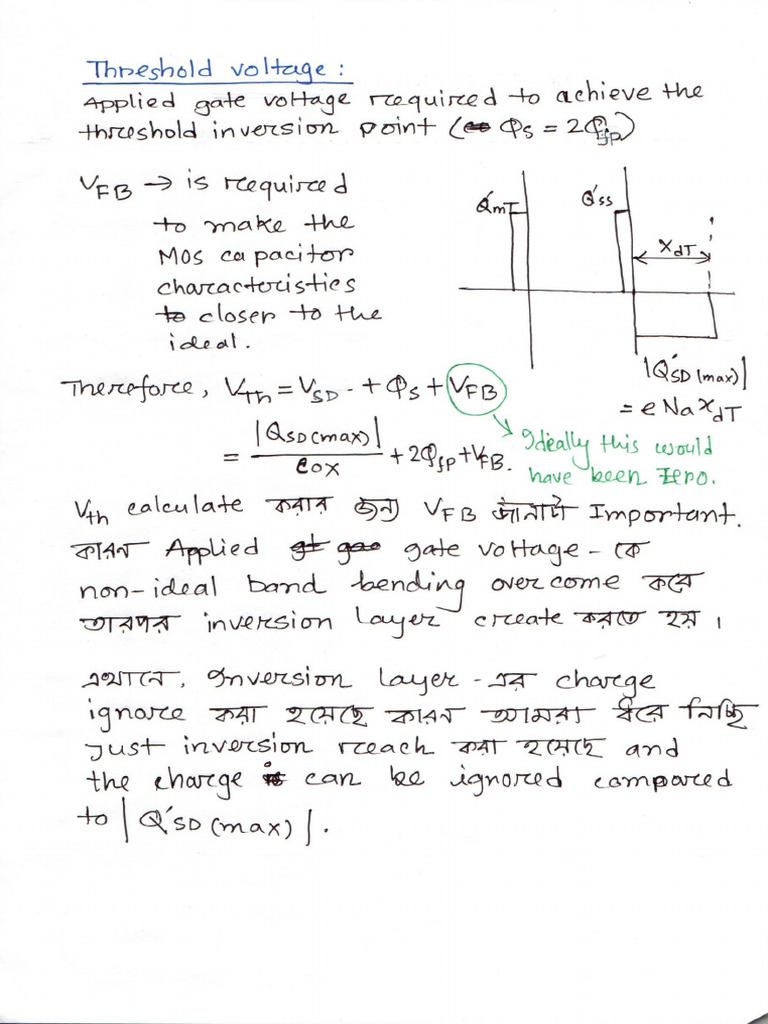 Threshold voltage :
Applied gate voltage required to achieve the
threshold inversion point ( φs = 2φfp)
VFB → is required
to make the
MOS capacitor
characteristics
closer to the
ideal.
Q'mT
Q'ss
xdT
|Q'SD (max)|
= e Na xdT
Therefore, Vth = VSD + φs + VFB
= |QSD(max)| / Cox + 2φfp + VFB.
Ideally this would
have been zero.
Vth calculate করার জন্য VFB জানাটা Important.
কারন Applied gate voltage - কে
non-ideal band bending overcome করে
তারপর inversion layer create করতে হয় ।
এখানে, Inversion layer - এর charge
ignore করা হয়েছে কারন আমরা ধরে নিচ্ছি
just inversion reach করা হয়েছে and
the charge can be ignored compared
to |Q'SD (max)|.